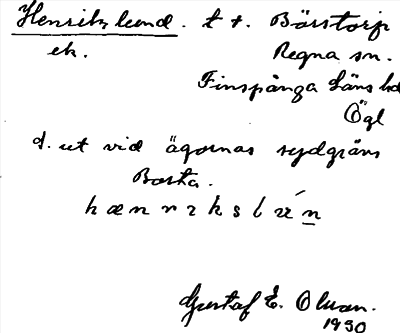 Henrikslund. t t. Bärstorp
ek. Regna sn.
Finspånga läns hd
Ögl
d. ut vid ägornas sydgräns
Borta.
Gustaf E. Olsson.
1930